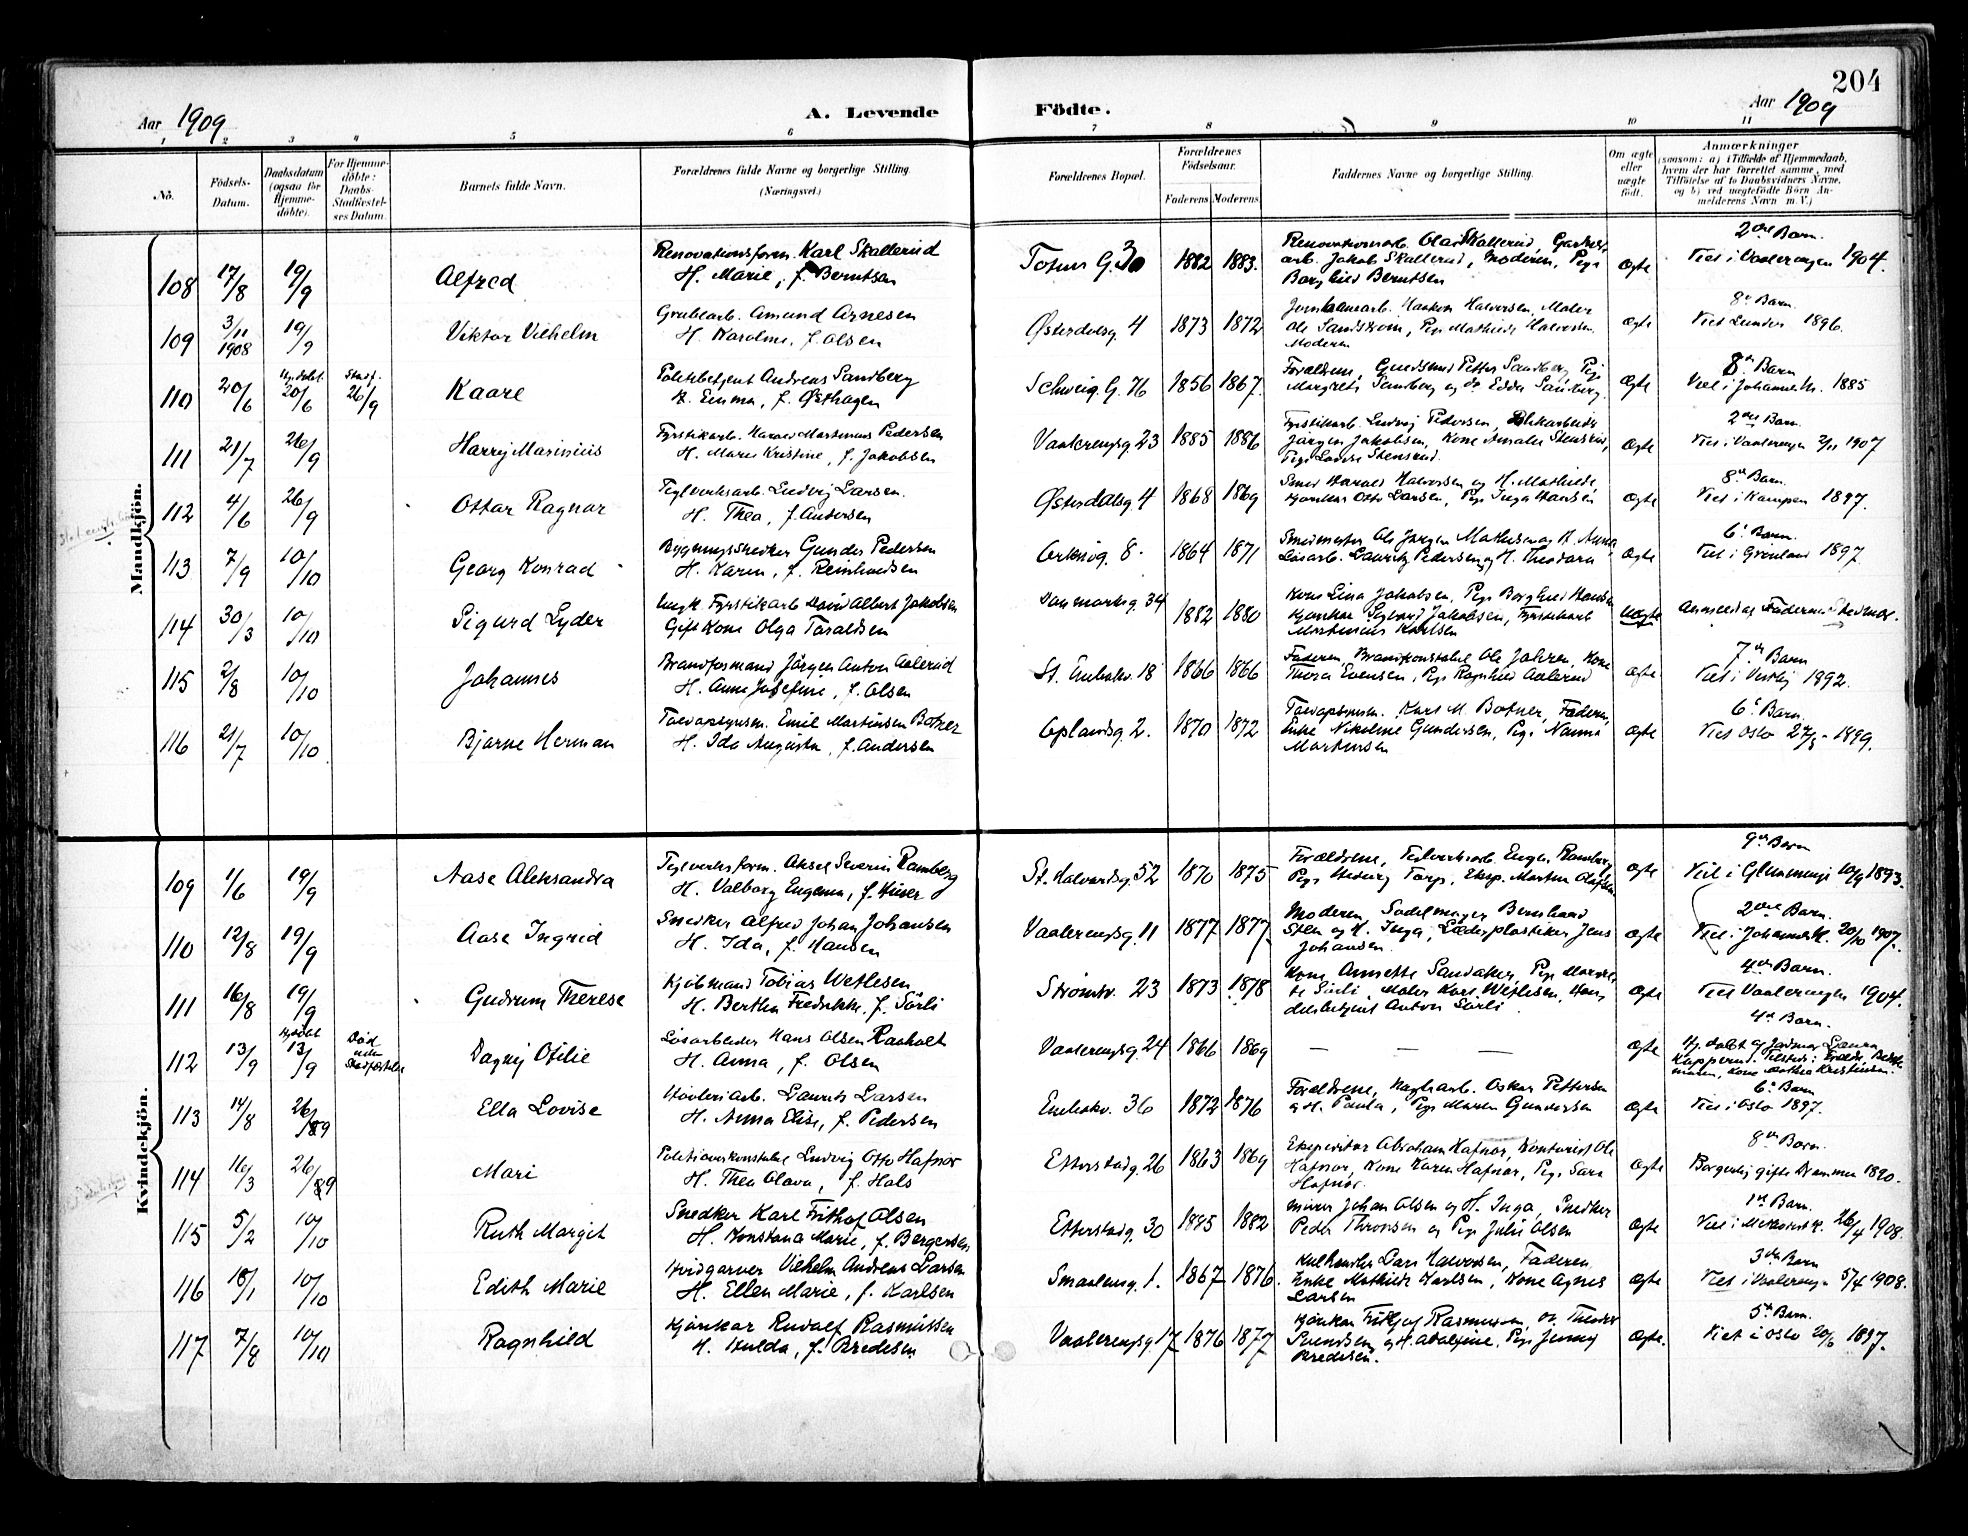 204
Aar 1909
A. Levende
Födte.
Aar 1909
1 2 3 4 5 6 7 8 9 10 11
No.
Födsels-Datum.
Daabsdatum (ogsaa for Hjemme-döbte).
For Hjemme-döbte: Daabs-Stadfæstel-ses Datum.
Barnets fulde Navn.
Forældrenes fulde Navne og borgerlige Stilling. (Næringsvei.)
Forældrenes Bopæl.
Forældrenes Födselsaar.
Faderens Moderens
Faddernes Navne og borgerlige Stilling.
Om ægte eller uægte födt.
Anmærkninger
(saasom: a) i Tilfælde af Hjemmedaab,
hvem der har forrettet samme, med
Tilföielse af to Daabsvidners Navne,
og b) ved uægtefödte Börn An-
melderens Navn m. V.)
Mandkjön.
108 17/8 19/9 Alfred
Renovationsform. Karl Skallerud
H. Marie, f. Berntsen
Totens G. 30 1882 1883.
Renovationsarb. Olai Skallerud,
arb. Jakob Skallerud, Moderen, Pige
Borghild Berntsen
ægte
2det Barn.
Viet i Vaalerengen 1904.
109 3/11 1908 19/9 Viktor Vilhelm
Grubearb. Amund Arnesen
H. Karoline, f. Olsen
Østerdalsg. 4 1873 1872
Halvorsen, Maler
Ole Sandstrom, Pige Mathilde Halvorsen.
Moderen
ægte
8de Barn.
Viet Lunder 1896.
110 20/6 20/6 Stadf. 26/9 Kaare
Politibetjent Andreas Sandberg
H. Emma, f. Østhagen
Schweig. G. 76 1856 1867.
Forældrene, Petter Sandberg, Pige
Margrete Sandberg og do. Edda Sandberg
ægte
8de Barn
Viet i Johannesk. 1885
111 21/7 26/9 Harry Marinius
Fyrstikarb. Harald Martinius Pedersen
H. Marie Kristine, f. Jakobsen
Vaalerengsg. 23 1885 1886
Fyrstikarb. Ludvig Pedersen, Blikarbeider
Jørgen Jakobsen, Kone Amalie Stensrud,
Pige Lovise Stensrud.
ægte
2det Barn.
Viet i Vaalerengen 2/11 1907
112 4/6 26/9 Ottar Ragnar
Teglverksarb. Ludvig Larsen.
H. Thea, f. Andersen
Østerdalsg. 4 1868 1869
Smed Harald Halvorsen og H. Mathilde,
Kjørekar Otto Larsen, Pige Inga Hansen
ægte
8de Barn.
Viet i Kampen 1897.
113 7/9 10/10 Georg Konrad
Bygningssnedker Gunder Pedersen
H. Karen, f. Reinholdsen
Orknøg. 8. 1864 1871
Smedmester Ole Jørgen Mathisen og H. Anna
Løsarb. Lauritz Pedersen og H. Theodora
ægte
6te Barn.
Viet i Grønland 1897.
114 30/3 10/10 Sigurd Lyder
Ungk. Fyrstikarb. David Albert Jakobsen
Gift Kone Olga Taraldsen
Danmarksg. 34 1882 1880
Kone Lina Jakobsen, Pige Borghild Hansen
Kjørekar Jakobsen, Fyrstikarb.
Martinius Karlsen
uægte
Anmeldt af Faderens Stedmor.
115 2/8 10/10 Johannes
Brandformand Jørgen Anton Aalerud
H. Anne Josefine, f. Olsen
St. Enebakv. 18 1866 1866
Faderen, Brandkonstabel Ole Johren, Kone
Thora Evensen, Pige Ragnhild Aalerud
ægte
7de Barn
Viet i Vestby 1892.
116 21/7 10/10 Bjarne Herman
Toldopsynsm. Emil Martinsen Botner
H. Ida Augusta, f. Andersen
Oplandsg. 2. 1870 1872
Toldopsynsm. Karl M. Botner, Faderen,
Enke Nikoline Gundersen, Pige Nanna
Martinsen
ægte
6te Barn.
Viet Oslo 1899.
Kvindekjön.
109 1/6 19/9 Aase Aleksandra
Teglverksform. Aksel Severin Ramberg
H. Valborg Eugenia, f. Huser
St. Halvardsg. 52 1870 1875
Forældrene, Teglverksarb. Eugen Ramberg
Pige Hedvig Torp, Eksp. Martin Olafsen
ægte
9de Barn
Viet i Glemminge 10/9 1893.
110 12/8 19/9 Aase Ingrid
Snedker Alfred Johan Johansen
H. Ida, f. Hansen
Vaalerengsg. 11 1877 1877
Moderen, Sadelmager Bernhard
Steen og H. Inga, Læderplastiker Jens
Johansen.
ægte
2det Barn.
Viet i Johannesk. 20/10 1907.
111 16/8 19/9 Gudrun Therese
Kjøbmand Tobias Wetlesen
H. Berthe Fredrikke, f. Sørli
Strømsv. 23 1873 1878
Kone Annette Sandaker, Pige
Sørli Maler Karl Wetlesen, Han-
delsbetjent Anton Sørli
ægte
4de Barn.
Viet Vaalerengen 1904.
112 13/9 Hjdøbt 13/9 Død uden Stadfæstelse Dagny Otilie
Løsarbeider Hans Olsen Raaholt
H. Anna, f. Olsen
Vaalerengsg. 24 1866 1869
— — —
ægte
4de Barn.
Hj. døbt af Jordmor Laura
Kopperud.
Kone Mathea Kristiansen.
113 14/8 26/9 Ella Lovise
Høvleriarb. Laurits Larsen
H. Anna Elise, f. Pedersen
Enebakv. 36 1872 1876
Forældrene, Oskar Pettersen
og H. Paula, Pige Maren Gundersen
ægte
6te Barn
Viet i Oslo 1897.
114 16/3 26/9 Mari
Politioverkonstabel Ludvig Otto Hafnor
H. Thea Olava, f. Hals
Etterstadg. 26 1863 1869
Ekspeditør Abraham Hafnor, Kontorist Ole
Hafnor, Kone Karen Hafnor, Pige Sara
Hafnor.
ægte
8de Barn.
Borgerlig gifte Drammen 1890.
115 5/2 10/10 Ruth Margit
Snedker Karl Frithof Olsen
H. Konstana Marie, f. Bergersen
Etterstadg. 30 1885 1882
Murer Johan Olsen og H. Inga, Snedker
Peder Thronsen og Pige Julie Olsen
ægte
1ste Barn.
Viet i Metodistk. 26/4 1908.
116 18/1 10/10 Edith Marie
Hvidgarver Vilhelm Andreas Larsen
H. Ellen Marie, f. Karlsen
Smaalensg. 1. 1867 1876.
Kulhandler Lars Halvorsen, Faderen,
Enke Mathilde Karlsen, Kone Agnes
Larsen
ægte
3die Barn
Viet i Vaalerengen 5/4 1908.
117 7/8 10/10 Ragnhild
Kjørekar Rudolf Rasmussen
H. Hulda, f. Bredesen
Vaalerengsg 17 1876 1877
Kjørekar Fritjof Rasmussen, do. Theodor
Svendsen og H. Adolfine, Pige Jenny
Bredesen.
ægte.
5te Barn.
Viet i Oslo 20/6 1897.